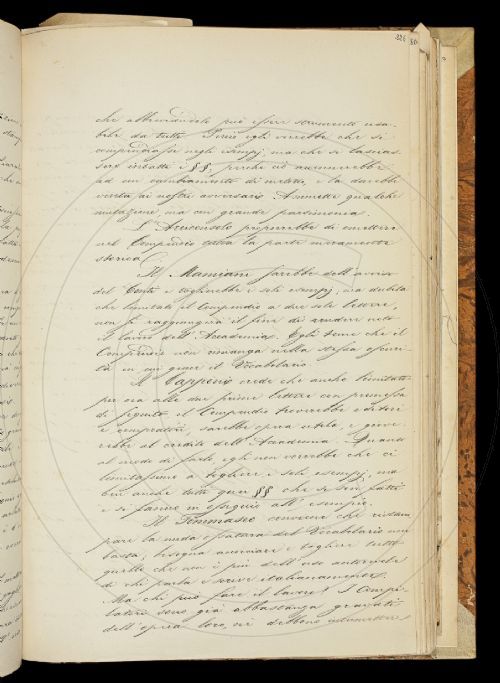 326
che abbreviandolo può esser veramente usa-
bile da tutti. Perciò egli vorrebbe che si
compendiasse negli esempj, ma che si lascias-
sero intatti i §§, perchè ciò
ad un cambiamento di metodo, e la darebbe
vinta ai nostri avversarj. Ammette qualche
mutazione, ma con grande parsimonia.
L'Arcangeli proporrebbe di omettere
nel Compendio tutta la parte meramente
storica.
Il Mamiani sarebbe dell'avviso
del Conti e toglierebbe i soli esempj, ma dubita
che limitato il Compendio a due sole lettere
non si raggiungerà il fine di render noto
il lavoro dell'Accademia. Egli teme che il
Compendio non rimanga nella stessa oscuri-
tà in cui giace il Vocabolario.
Il Capponi crede che anche limitato
per ora alle due prime lettere con promessa
di seguito, il Compendio troverebbe editori
e compratori, sarebbe opera utile, e giove-
rebbe al credito dell'Accademia. Quanto
al modo di farlo egli non vorrebbe che ci
limitassimo a togliere i soli esempj, ma
ben anche tutti quei §§ che si son fatti
e si fanno in ossequio all'esempio.
Il Tommaseo conviene che ristam-
pare la nuda ossatura del Vocabolario non
basta; bisogna accorciare e togliere tutto
quello che non è più dell'uso
di chi parla e scrive italianamente.
Ma chi può fare il lavoro? I Compi-
latori sono già abbastanza gravati
dell'opera loro, nè debbono